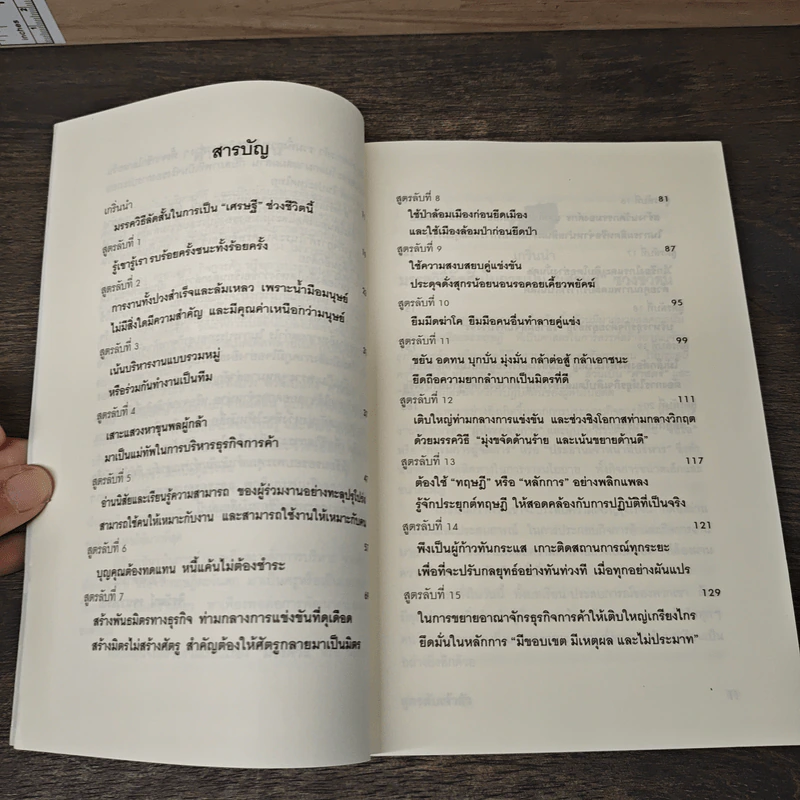 สารบัญ
เกริ่นนำ
มรรควิธีลัดสั้นในการเป็น "เศรษฐี" ช่วงชีวิตนี้
สูตรลับที่ 1
รู้เขารู้เรา รบร้อยครั้งชนะทั้งร้อยครั้ง
สูตรลับที่ 2
การงานทั้งปวงสำเร็จและล้มเหลว เพราะน้ำมือมนุษย์
ไม่มีสิ่งใดมีความสำคัญ และมีคุณค่าเหนือกว่ามนุษย์
สูตรลับที่ 3
เน้นบริหารงานแบบรวมหมู่
หรือร่วมกันทำงานเป็นทีม
สูตรลับที่ 4
เสาะแสวงหาขุนพลผู้กล้า
มาเป็นแม่ทัพในการบริหารธุรกิจการค้า
สูตรลับที่ 5
อ่านนิสัยและเรียนรู้ความสามารถ ของผู้ร่วมงานอย่างทะลุปรุโปร่ง
สามารถใช้คนให้เหมาะกับงาน และสามารถใช้งานให้เหมาะกับคน
สูตรลับที่ 6
บุญคุณต้องทดแทน หนี้แค้นไม่ต้องชำระ
สูตรลับที่ 7
สร้างพันธมิตรทางธุรกิจ ท่ามกลางการแข่งขันที่ดุเดือด
สร้างมิตรไม่สร้างศัตรู สำคัญต้องให้ศัตรูกลายมาเป็นมิตร
สูตรลับที่ 8 81
ใช้ป่าล้อมเมืองก่อนยึดเมือง
และใช้เมืองล้อมป่าก่อนยึดป่า
สูตรลับที่ 9 87
ใช้ความสงบสยบคู่แข่งขัน
ประดุจดั่งสุกรน้อยนอนรอคอยเคี้ยวพยัคฆ์
สูตรลับที่ 10 95
ยืมมีดฆ่าโค ยืมมือคนอื่นทำลายคู่แข่ง
สูตรลับที่ 11 99
ขยัน อดทน บุกบั่น มุ่งมั่น กล้าต่อสู้ กล้าเอาชนะ
ยึดถือความยากลำบากเป็นมิตรที่ดี
สูตรลับที่ 12 111
เติบใหญ่ท่ามกลางการแข่งขัน และช่วงชิงโอกาสท่ามกลางวิกฤต
ด้วยมรรควิธี "มุ่งขจัดด้านร้าย และเน้นขยายด้านดี"
สูตรลับที่ 13 117
ต้องใช้ "ทฤษฎี" หรือ "หลักการ" อย่างพลิกแพลง
รู้จักประยุกต์ทฤษฎี ให้สอดคล้องกับการปฏิบัติที่เป็นจริง
สูตรลับที่ 14 121
พึงเป็นผู้ก้าวทันกระแส เกาะติดสถานการณ์ทุกระยะ
เพื่อที่จะปรับกลยุทธ์อย่างทันท่วงที เมื่อทุกอย่างผันแปร
สูตรลับที่ 15 129
ในการขยายอาณาจักรธุรกิจการค้าให้เติบใหญ่เกรียงไกร
ยึดมั่นในหลักการ "มีขอบเขต มีเหตุผล และไม่ประมาท"